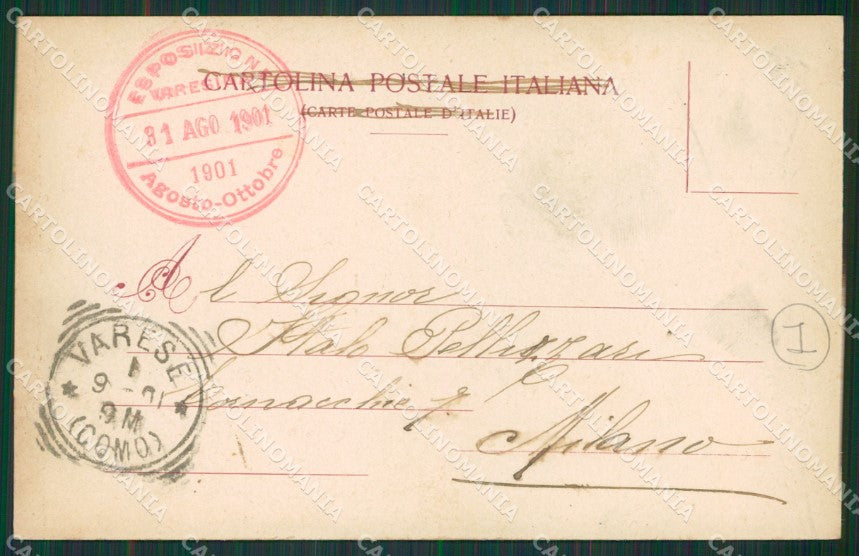 CARTOLINA POSTALE ITALIANA
(CARTE POSTALE D'ITALIE)
ESPOSIZIONE
VARESE
31 AGO 1901
1901
Agosto-Ottobre
Al Signor
Italo Pellizzari
Cornacchie 7
Milano
VARESE
1
9 - 01
9M
(COMO)
I
CARTOLINOMANIA